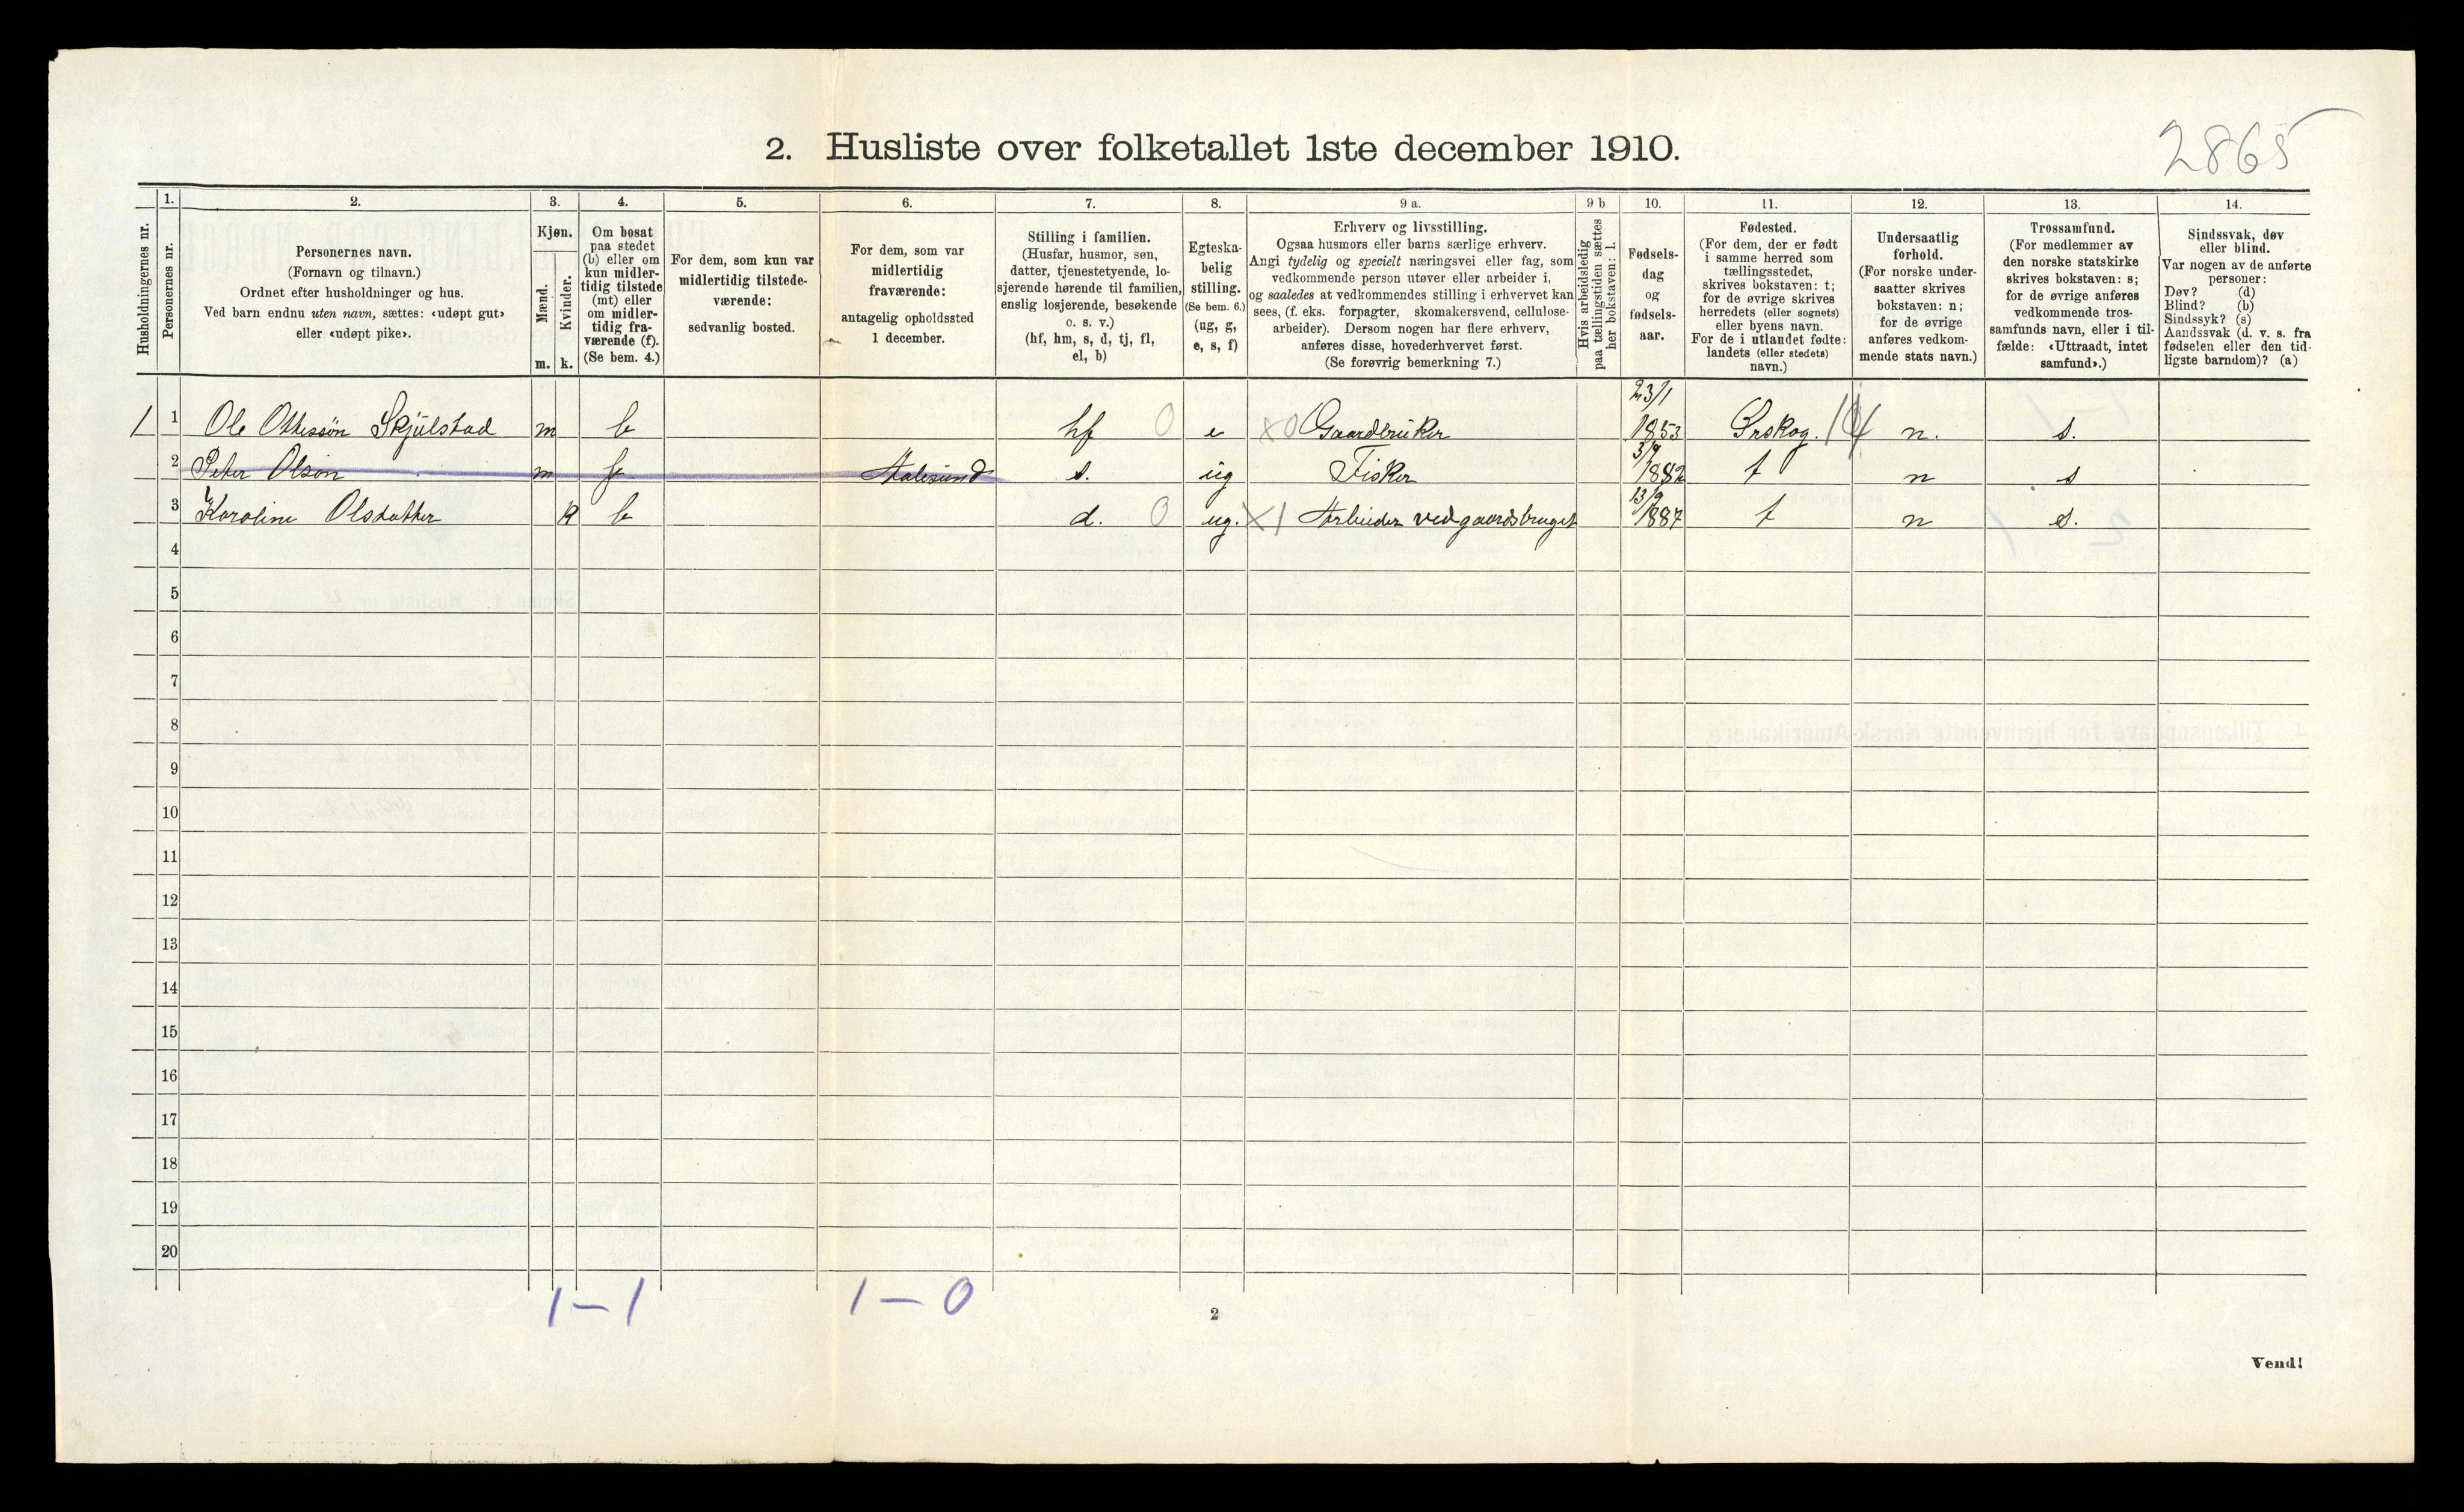 2865
2. Husliste over folketallet 1ste december 1910.
Husholdningernes nr.
1. Personernes nr.
2. Personernes navn.
(Fornavn og tilnavn.)
Ordnet efter husholdninger og hus.
Ved barn endnu uten navn, sættes: «udøpt gut»
eller «udøpt pike».
3. Kjøn.
Mænd. m.
Kvinder. k.
4. Om bosat
paa stedet
(b) eller om
kun midler-
tidig tilstede
(mt) eller
om midler-
tidig fra-
værende (f).
(Se bem. 4.)
5. For dem, som kun var
midlertidig tilstede-
værende:
sedvanlig bosted.
6. For dem, som var
midlertidig
fraværende:
antagelig opholdssted
1 december.
7. Stilling i familien.
(Husfar, husmor, søn,
datter, tjenestetyende, lo-
sjerende hørende til familien,
enslig losjerende, besøkende
o. s. v.)
(hf, hm, s, d, tj, fl,
el, b)
8. Egteska-
belig
stilling.
(Se bem. 6.)
(ug, g,
e, s, f)
9 a. Erhverv og livsstilling.
Ogsaa husmors eller barns særlige erhverv.
Angi tydelig og specielt næringsvei eller fag, som
vedkommende person utøver eller arbeider i,
og saaledes at vedkommendes stilling i erhvervet kan
sees, (f. eks. forpagter, skomakersvend, cellulose-
arbeider). Dersom nogen har flere erhverv,
anføres disse, hovederhvervet først.
(Se forøvrig bemerkning 7.)
9 b Hvis arbeidsledig
paa tællingstiden sættes
her bokstaven: l.
10. Fødsels-
dag
og
fødsels-
aar.
11. Fødested.
(For dem, der er født
i samme herred som
tællingsstedet,
skrives bokstaven: t;
for de øvrige skrives
herredets (eller sognets)
eller byens navn.
For de i utlandet fødte:
landets (eller stedets)
navn.)
12. Undersaatlig
forhold.
(For norske under-
saatter skrives
bokstaven: n;
for de øvrige
anføres vedkom-
mende stats navn.)
13. Trossamfund.
(For medlemmer av
den norske statskirke
skrives bokstaven: s;
for de øvrige anføres
vedkommende tros-
samfunds navn, eller i til-
fælde: «Uttraadt, intet
samfund».)
14. Sindssvak, døv
eller blind.
Var nogen av de anførte
personer:
Døv? (d)
Blind? (b)
Sindssyk? (s)
Aandssvak (d. v. s. fra
fødselen eller den tid-
ligste barndom)? (a)
1 1 Ole Ottessøn Skjülstad m b hf 0 e X0 Gaardbrüker 23/1 1853 Ørskog. n. s.
2 Peter Olsøn m f Aalesünd s. üg Fisker 3/9 1882 t n s
3 Karoline Olsdatter k b d. 0 ug. X1 Arbeider ved gaardsbruget 13/9 1887 t n s.
4
5
6
7
8
9
10
11
12
13
14
15
16
17
18
19
20
1 - 1 1 - 0
2
Vend!